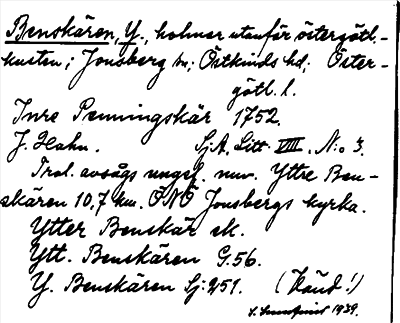 Benskären, Y., holmar utanför östergötl.-
kusten; Jonsberg sn; Östkinds hd; Öster-
götl. l.
Inre Penningskär 1752.
J. Hahn. Sj.A. Litt. VIII. N:o 3.
Trol. avsågs ungef. nuv. Yttre Ben-
skären 10,7 km. ÖNÖ Jonsbergs kyrka.
Ytter Benskär ek.
Ytt. Benskären G.56.
Y. Benskären Sj:251. (Känd!)
1939.